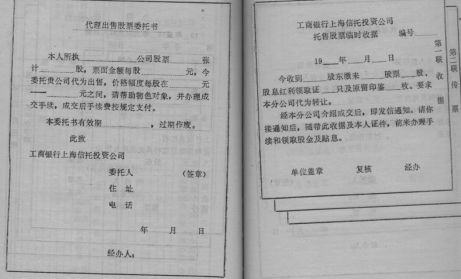 代理出售股票委托书
本人所执 公司股票 张
计 股，票面金额每股 元，今
委托贵公司代为出售，价格幅度每股在 元
—— 元之间，请帮助物色对象，并办理成
交手续，成交后手续费按规定支付。
本委托书有效期 ，过期作废。
此致
工商银行上海信托投资公司
委托人 （签章）
住 址
电 话
年 月 日
经办人：
工商银行上海信托投资公司
托售股票临时收据 编号
19 年 月 日
今收到 股东缴来 股票 股、
股息红利领取证 只及原留印鉴 枚，要求
本分公司代为转让。
经本分公司介绍成交后，即发信通知，请你
接通知后，随带此收据及本人证件，前来办理手
续和领取股金及贴息。
单位盖章 复核 经办
第一联 收据
第二联 传票